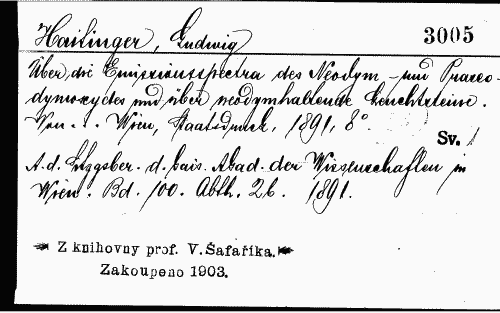 Haitinger, Ludwig
3005
Über die Emissionsspectra des Neodym- und Praseo-
dymoxydes und über neodymhaltende Leuchtsteine.
Von... Wien, Staatsdruck, 1891, 8°.
Sv. 1
A. d. Sitzgsber. d. kais. Akad. der Wissenschaften in
Wien. Bd. 100. Abth. 2b. 1891.
Z knihovny prof. V. Šafaříka.
Zakoupeno 1903.